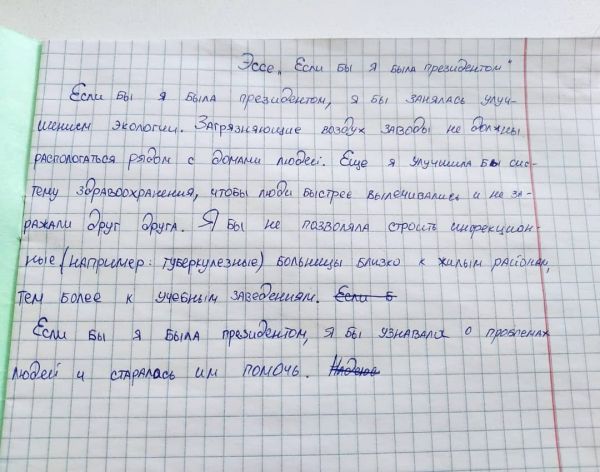 Эссе „ Если бы я была президентом"
Если бы я была президентом, я бы занялась улуч-
шением экологии. Загрязняющие воздух заводы не должны
распологаться рядом с домами людей. Еще я улучшила бы сис-
тему здравоохранения, чтобы люди быстрее вылечивались и не за-
ражали друг друга. Я бы не позволяла строить инфекцион-
ные (например: туберкулезные) больницы близко к жилым районам,
тем более к учебным заведениям. Если б
Если бы я была президентом, я бы узнавала о проблемах
людей и старалась им помочь.